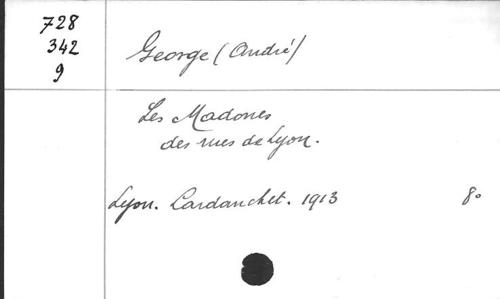 728
342
9
George (André)
Les Madones
des rues de Lyon.
Lyon. Lardanchet. 1913 8°